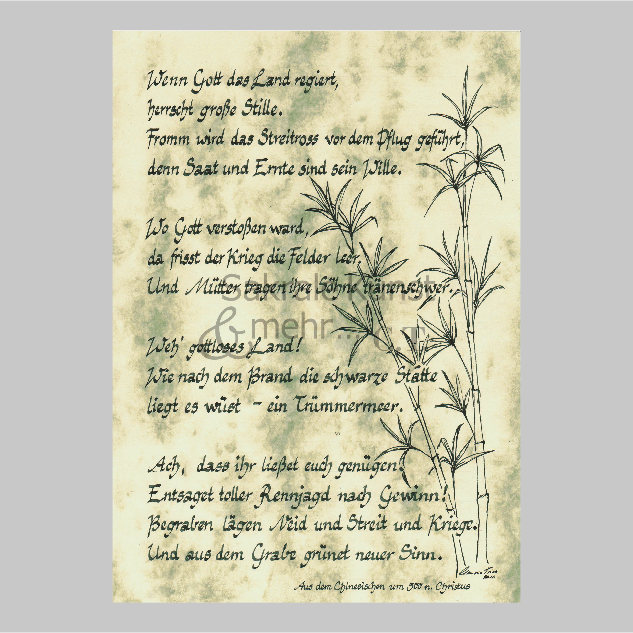 Wenn Gott das Land regiert,
herrscht große Stille.
Fromm wird das Streitross vor dem Pflug geführt,
denn Saat und Ernte sind sein Wille.
Wo Gott verstoßen ward,
da frisst der Krieg die Felder leer.
Und Mütter tragen ihre Söhne tränenschwer.
Sakrale Kunst
& mehr...
Weh' gottloses Land!
Wie nach dem Brand die schwarze Stätte
liegt es wüst - ein Trümmermeer.
Ach, dass ihr ließet euch genügen!
Entsaget toller Rennjagd nach Gewinn!
Begraben lägen Neid und Streit und Kriege.
Und aus dem Grabe grünet neuer Sinn.
Aus dem Chinesischen um 300 n. Christus